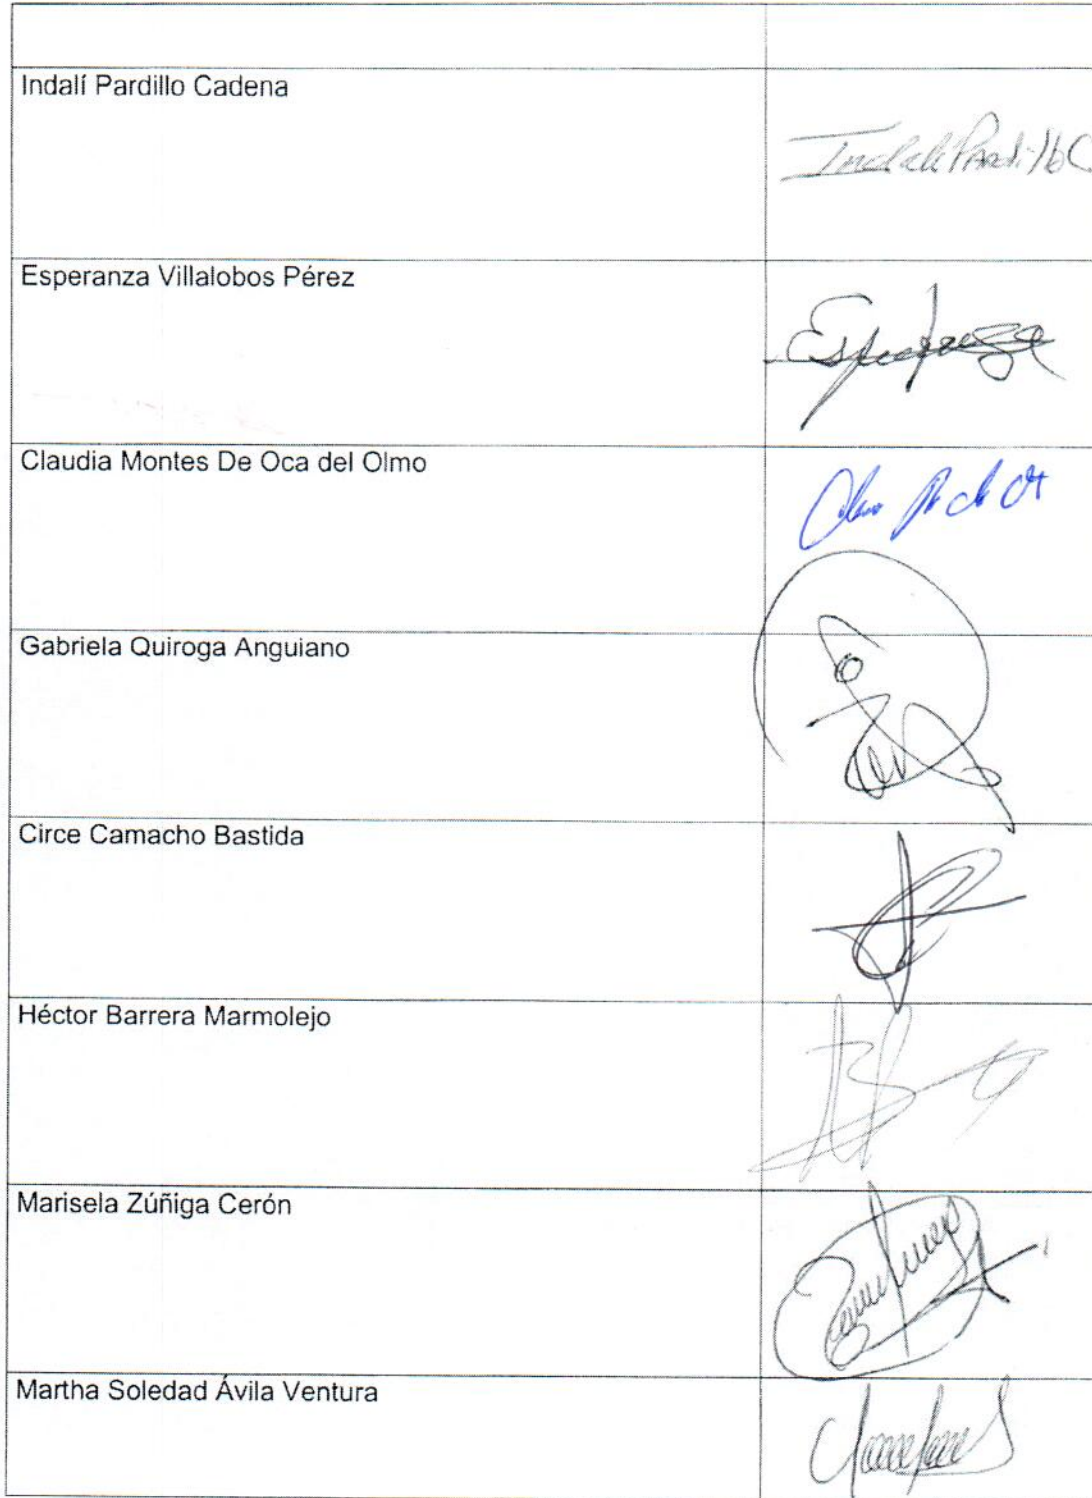 Indalí Pardillo Cadena
Indali Pardillo C
Esperanza Villalobos Pérez
Esperanza
Claudia Montes De Oca del Olmo
Gabriela Quiroga Anguiano
Circe Camacho Bastida
Héctor Barrera Marmolejo
Marisela Zúñiga Cerón
Martha Soledad Ávila Ventura